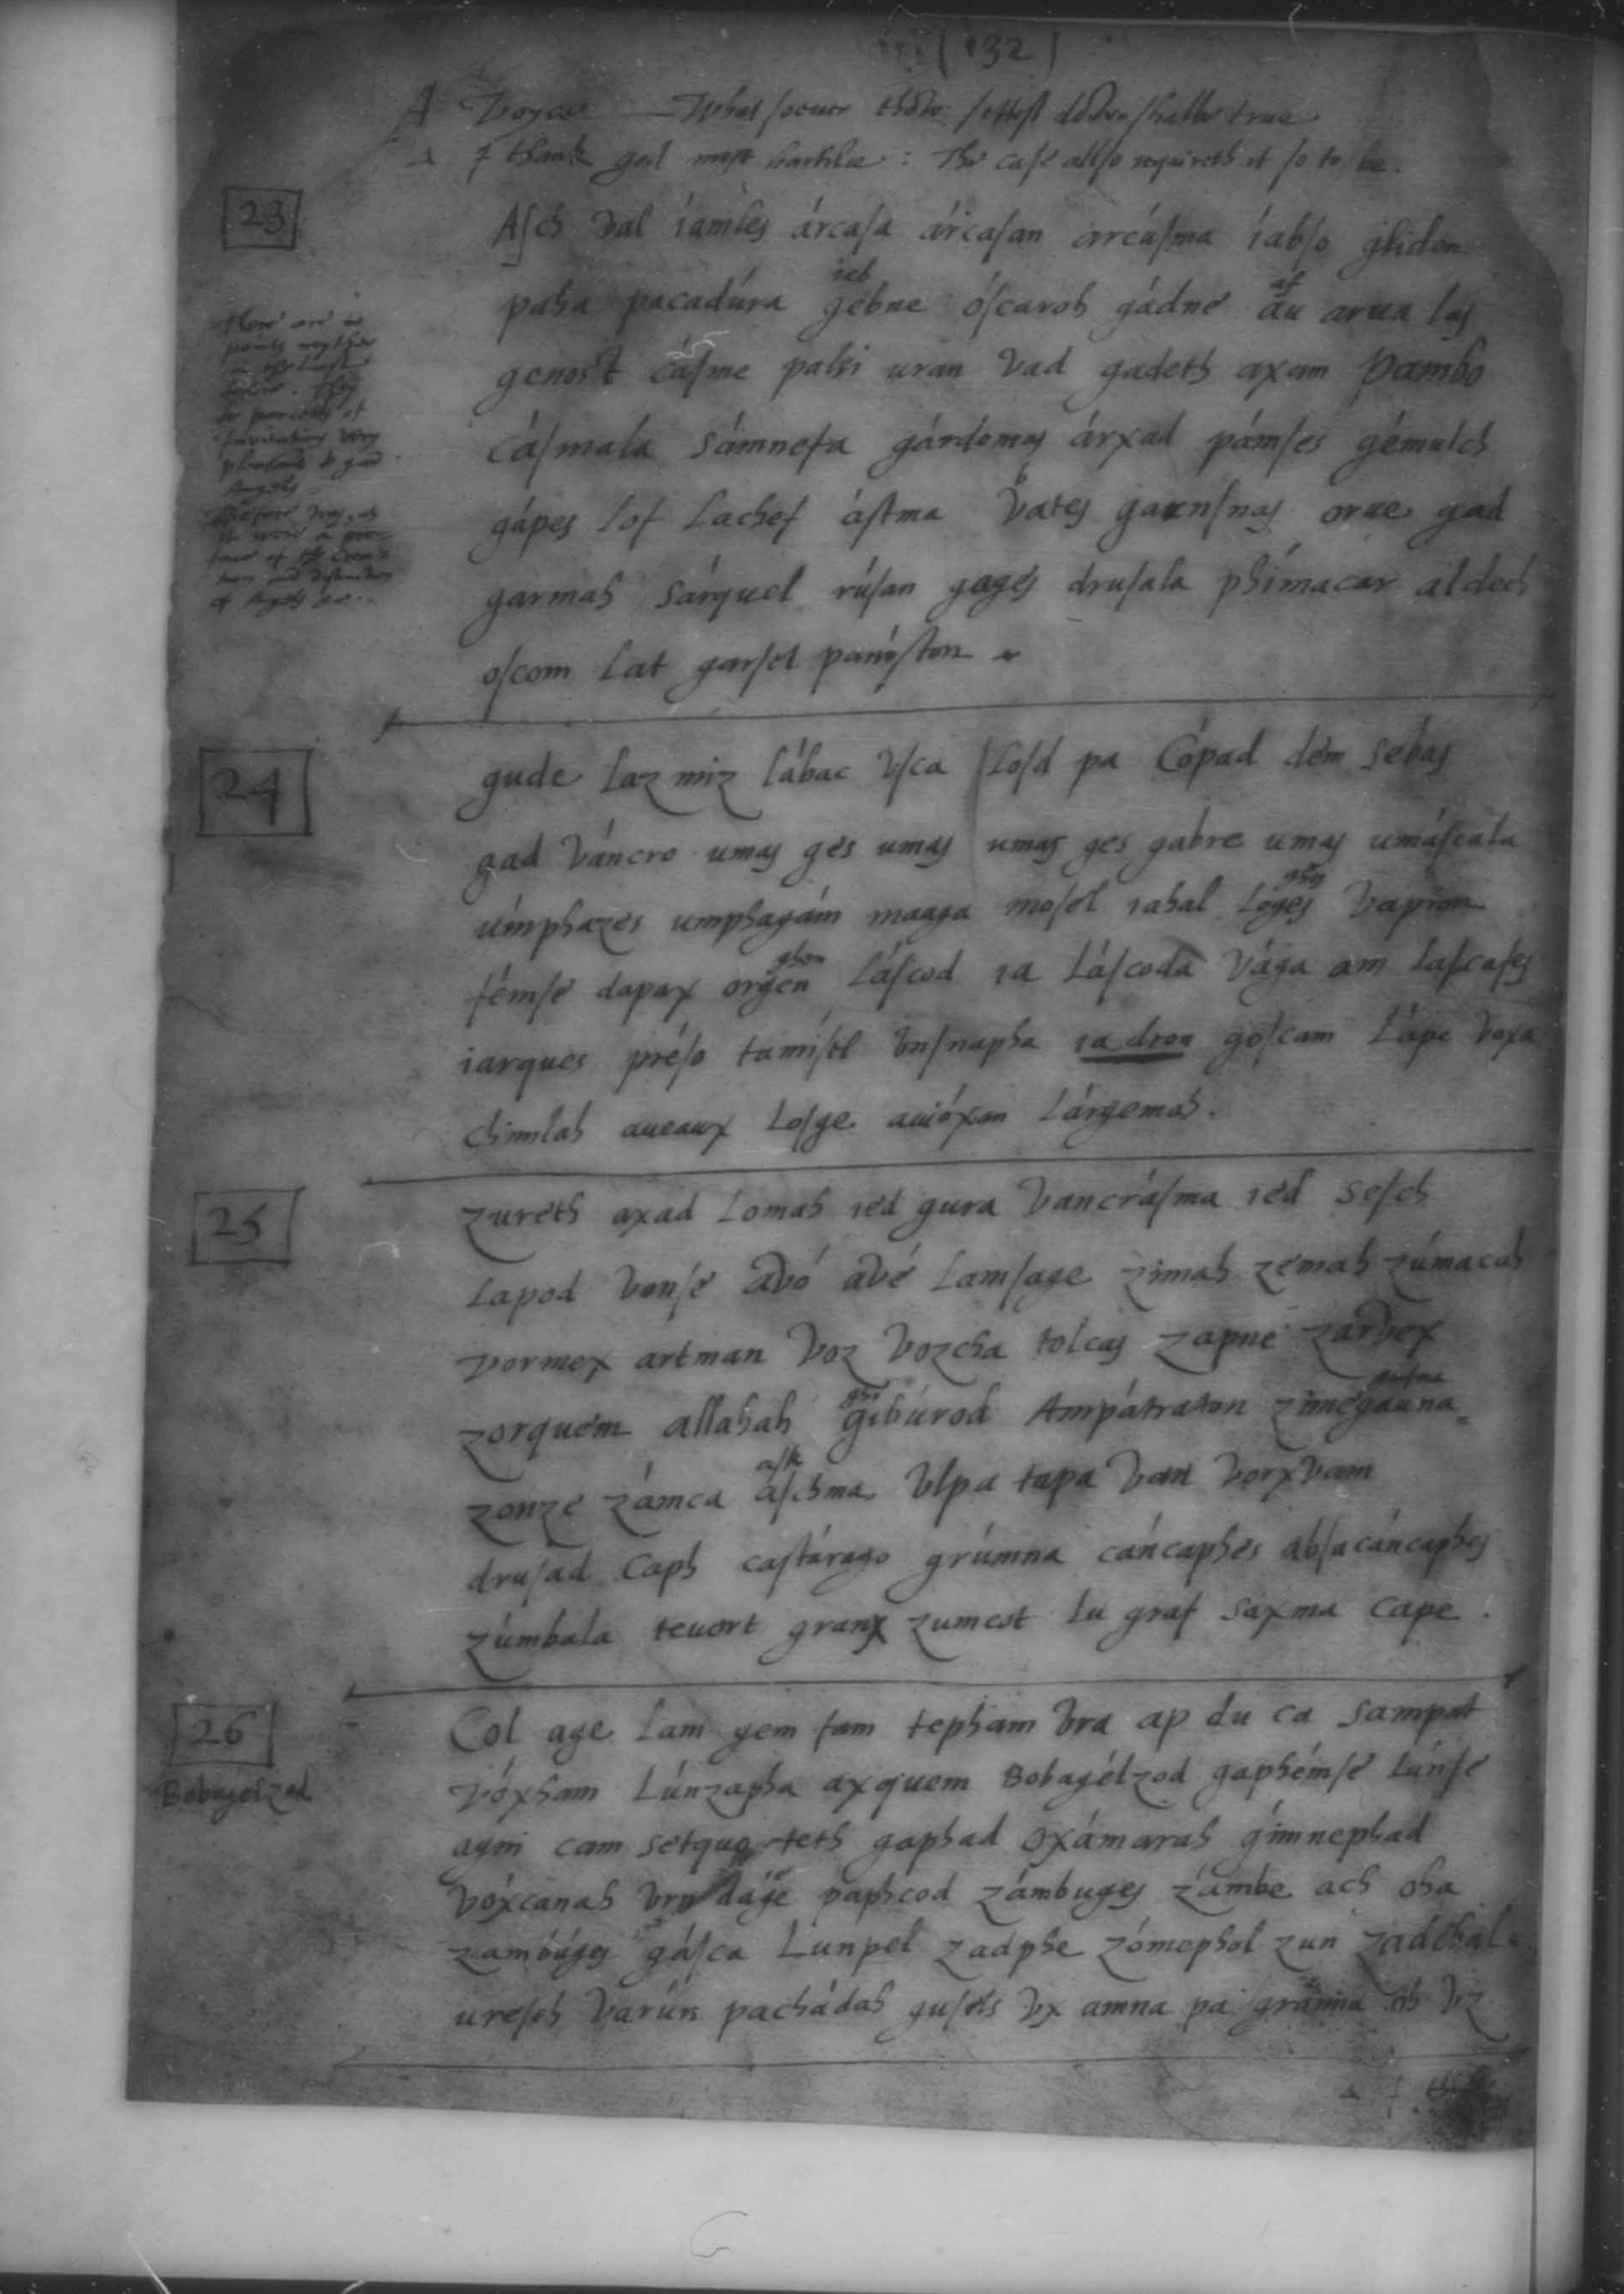 (132)
A Voyce — What soeuer thow settest down shalbe true
Δ I thank god most hartilie : The case allso requireth it so to be.
23
Asch val íamles árcasa árcasan arcúsma íabso gliden
paha pacadúra gebne óscaroh gádne au arua las
ieb af
genost cásme palsi uran vad gadeth axam pambo
cásmala sámnefa gárdomas árxad pámses gémulch
gápes lof lachef ástma vates garnsnas orue gad
garmah sárquel rúsan gages drusala phímacar aldech
oscom lat garset panóston
there are
points
Before was, as
it were a
of Angels
24
gude laz miz lábac vsca losd pa Cópad dem sebas
gad váncro umas ges umas umas ges gabre umas umáscala
úmphazes umphagám maaga mosel iahal loges vapron
ghes
fémse dapax orgen láscod ia láscoda vága am lascafes
ghen
iarques préso tamísel vnsnapha ia dron goscam lápe voxa
chimlah aueaux losge auióxan lárgemah.
25
zureth axad lomah ied gura vancrásma ied sesch
lapod vonse avó avé lamsage zimah zemah zúmacah
vormex artman voz vozcha tolcas zapne zarvex
zorquem allahah gibúrod Ampátraton zimegauna
ghi
zonze zámca aschma vlpa tapa van vorxvam
ask
drusad Caph castárago grúmna cáncaphes absacáncaphes
zúmbala teuort granx zumcot lu graf saxma cape .
26
Bobogelzod
Col age lam gem fam tepham vra ap du ca sampat
vóxham Lúnzapha axquem Bobagélzod gaphémse lúnse
agni cam setquo teth gaphad oxámarah gímnephad
vóxcanah vrn dage paphcod zámbuges zámbe ach oha
zambúges gásca Lunpel zadphe zómephol zun zadchal
uresch varún pachádah gusels vx amna pa granna oh vz